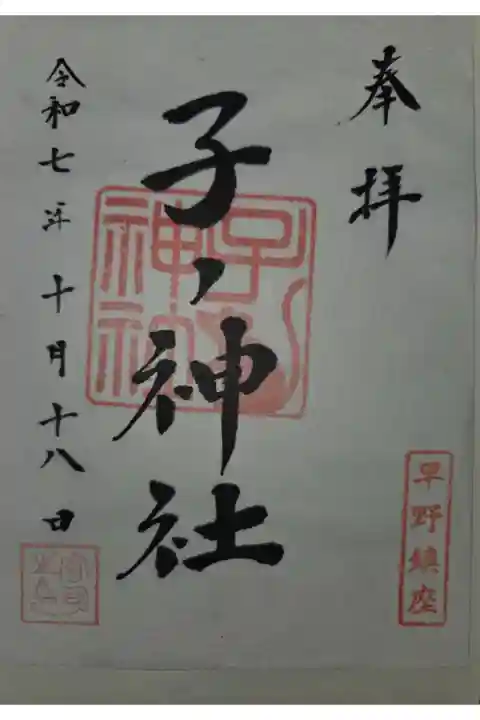 奉拝
早野鎮座
子ノ神社
令和七年十月十八日